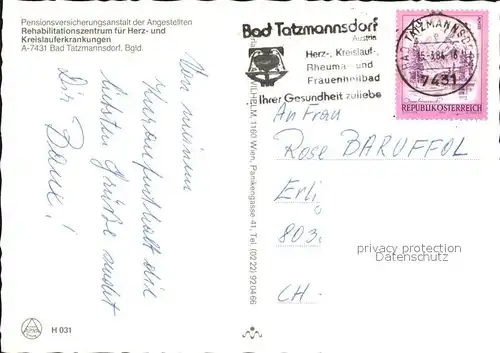 Pensionsversicherungsanstalt der Angestellten
Rehabilitationszentrum für Herz- und
Kreislauferkrankungen
A-7431 Bad Tatzmannsdorf, Bgld
Von meinem
Kuraufenthalt die
liebsten Grüße sendet
Dir
H 031
1160 Wien, Panikengasse 41, Tel. (0222) 92 04 66
Bad Tatzmannsdorf
Austria
Herz-, Kreislauf-,
Rheuma- und
Frauenheilbad
Ihrer Gesundheit zuliebe
BAD TATZMANNSD
7431
REPUBLIK ÖSTERREICH
An Frau
Rose BARUFFOL
803
CH-
privacy protection
Datenschutz